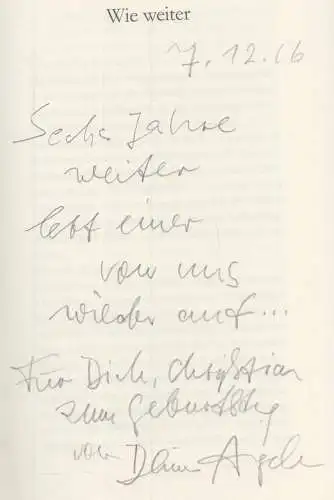 Wie weiter
7.12.16
Sechs Jahre
weiter
lebt einer
von uns
wieder auf...
Für Dich, Christian
zum Geburtstag
von Deiner Angela